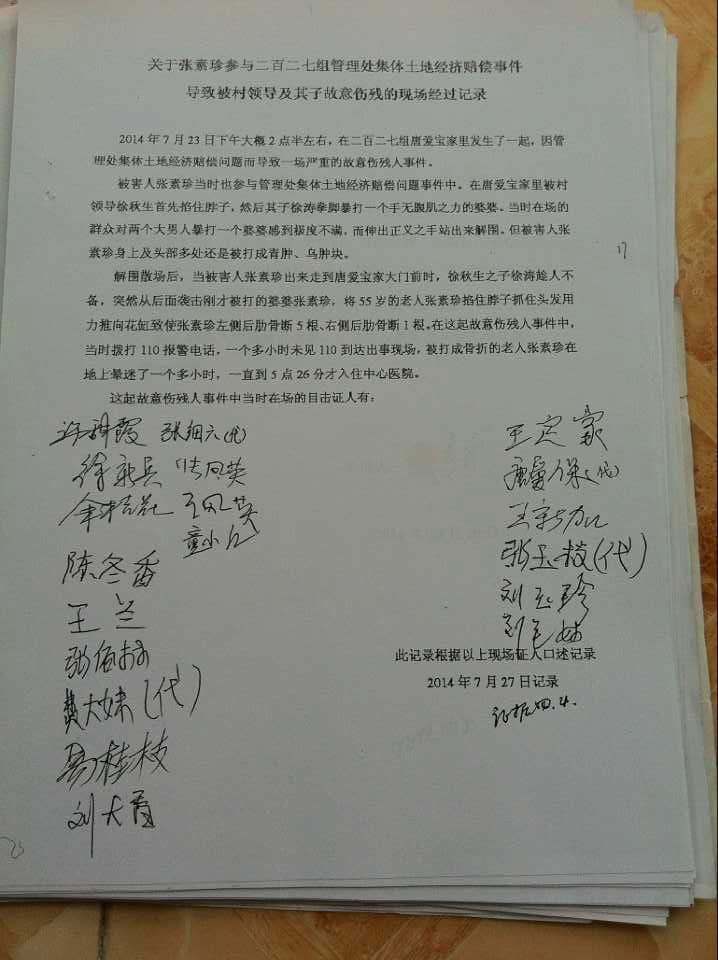 关于张素珍参与二百二七组管理处集体土地经济赔偿事件
导致被村领导及其子故意伤残的现场经过记录
2014年7月23日下午大概2点半左右，在二百二七组唐爱宝家里发生了一起，因管
理处集体土地经济赔偿问题而导致一场严重的故意伤残人事件。
被害人张素珍当时也参与管理处集体土地经济赔偿问题事件中。在唐爱宝家里被村
领导徐秋生首先掐住脖子，然后其子徐涛拳脚暴打一个手无腹肌之力的婆婆。当时在场的
群众对两个大男人暴打一个婆婆感到极度不满，而伸出正义之手站出来解围。但被害人张
素珍身上及头部多处还是被打成青肿、乌肿块。
17
解围散场后，当被害人张素珍出来走到唐爱宝家大门前时，徐秋生之子徐涛趁人不
备，突然从后面袭击刚才被打的婆婆张素珍，将55岁的老人张素珍掐住脖子抓住头发用
力推向花缸致使张素珍左侧后肋骨断5根、右侧后肋骨断1根。在这起故意伤残人事件中，
当时拨打110报警电话，一个多小时未见110到达出事现场，被打成骨折的老人张素珍在
地上晕迷了一个多小时，一直到5点26分才入住中心医院。
这起故意伤残人事件中当时在场的目击证人有：
张细六(代)
王定豪
徐新兵
王凤英
童小
陈冬香
张玉枝(代)
王兰
刘玉珍
大妹(代)
桂枝
刘大
此记录根据以上现场证人口述记录
2014年7月27日记录
证据四.4.